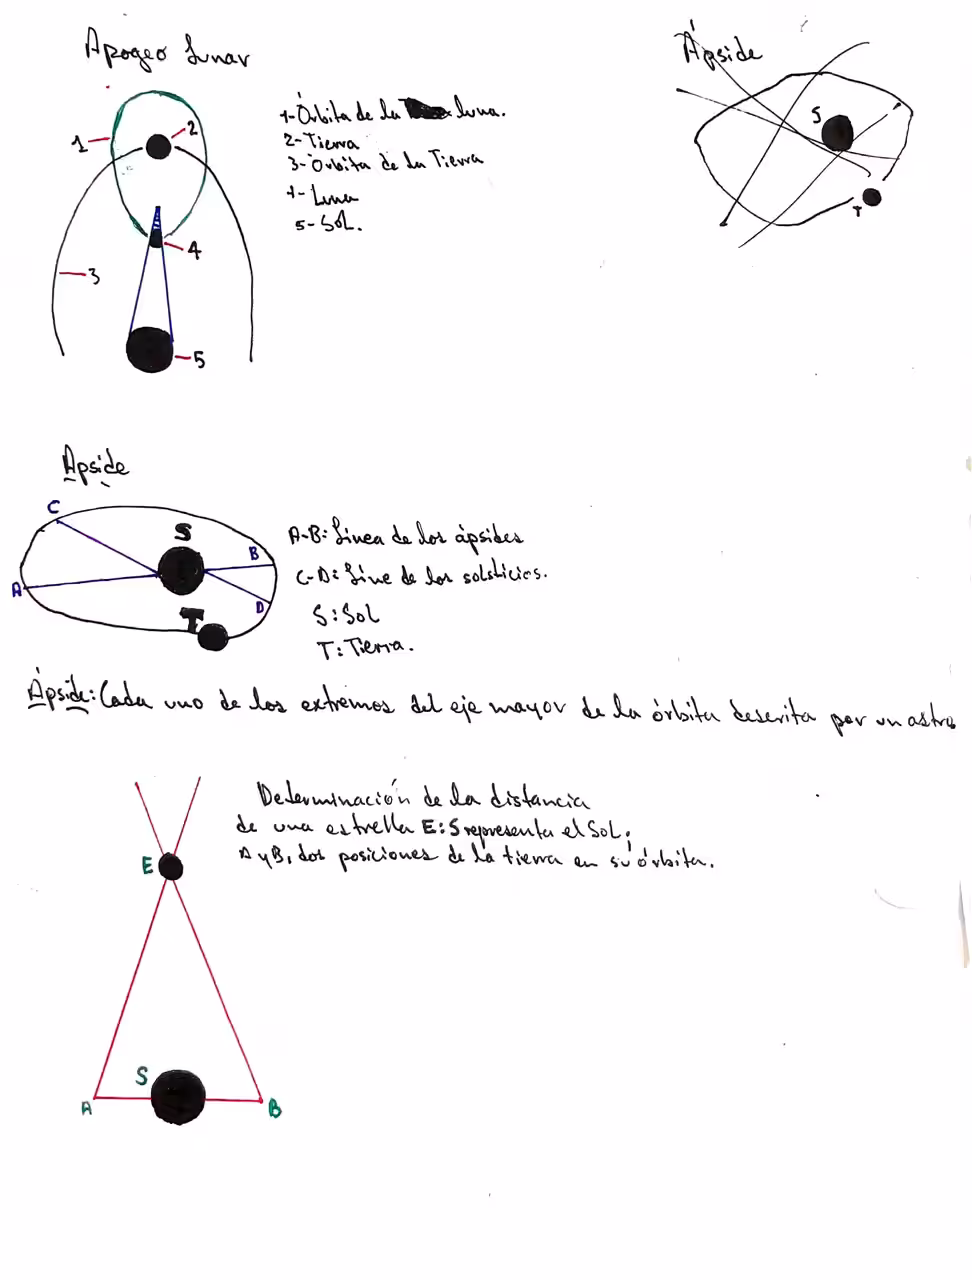 Apogeo Lunar
1
2
3
4
5
1- Órbita de la luna.
2- Tierra
3- Orbita de la Tierra
4- Luna
5- Sol.
Ápside
S
T
Apside
C
S
B
A
D
T
A-B: Línea de los ápsides
C-D: Líne de los solsticios.
S: Sol
T: Tierra.
Ápside: Cada uno de los extremos del eje mayor de la órbita descrita por un astro
Determinación de la distancia
de una estrella E: S representa el Sol.
A y B, dos posiciones de la tierra en su órbita.
E
S
A
B